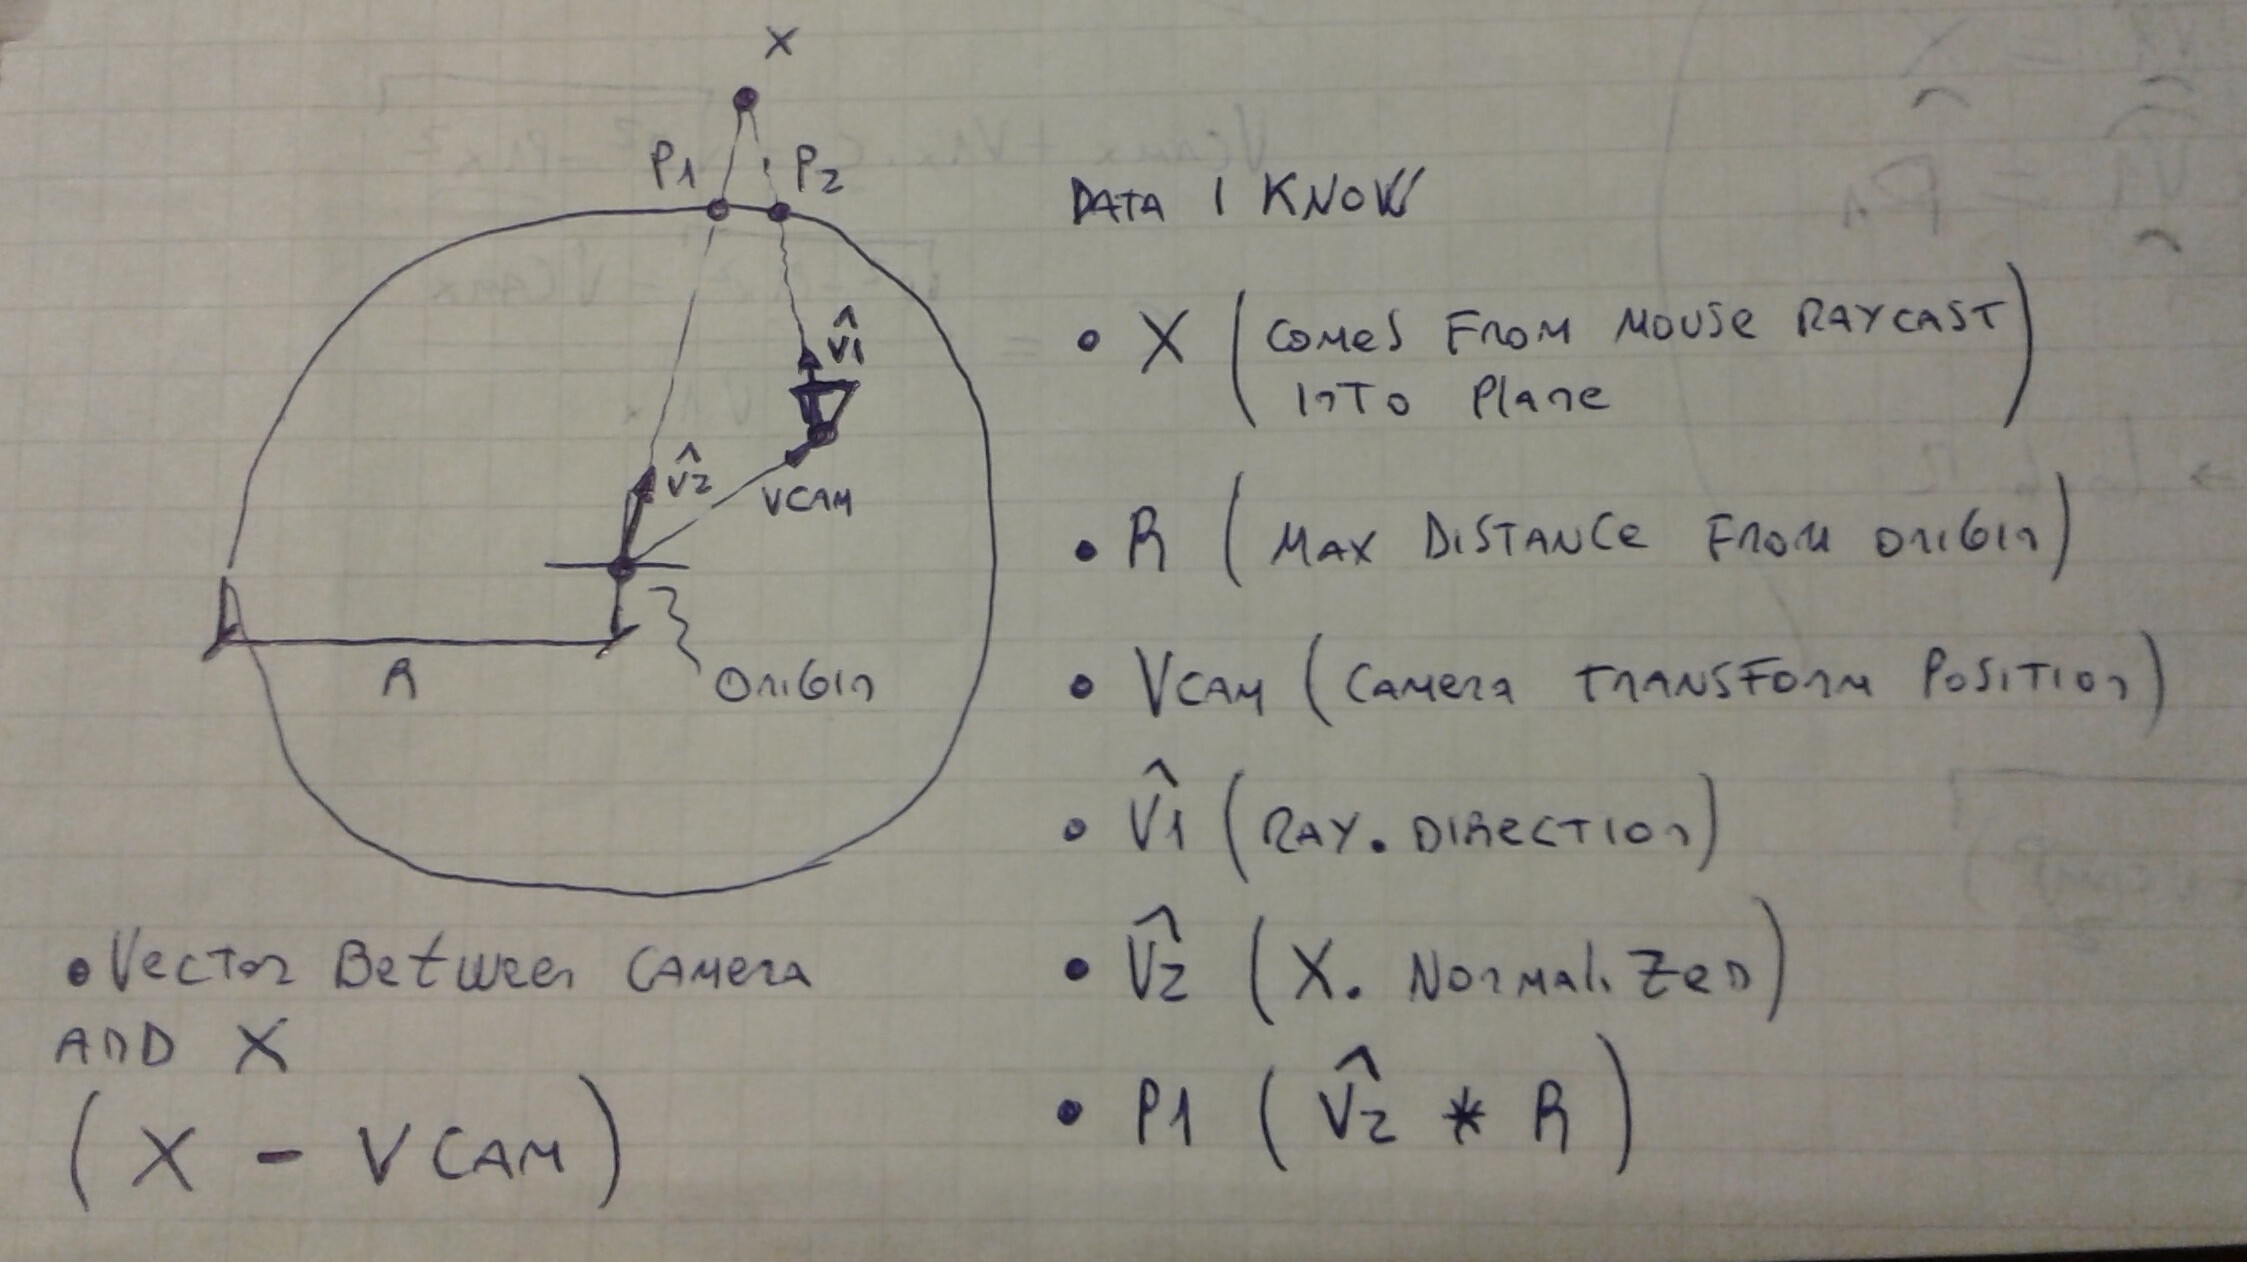 X
P1
P2
V̂1
V̂2
VCAM
R
ORIGIN
DATA I KNOW
• X (COMES FROM MOUSE RAYCAST
INTO PLANE)
• R (MAX DISTANCE FROM ORIGIN)
• VCAM (CAMERA TRANSFORM POSITION)
• V̂1 (RAY. DIRECTION)
• V̂2 (X. NORMALIZED)
• P1 (V̂2 * R)
• VECTOR BETWEEN CAMERA
AND X
(X - VCAM)